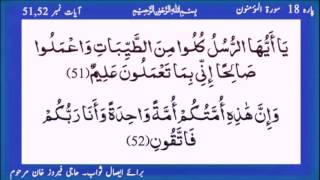 پارہ 18 سورۃ المؤمنون
بِسْمِ اللهِ الرَّحْمٰنِ الرَّحِيْمِ
آیات نمبر 51,52
يَا أَيُّهَا الرُّسُلُ كُلُوا مِنَ الطَّيِّبَاتِ وَاعْمَلُوا
صَالِحًا إِنِّي بِمَا تَعْمَلُونَ عَلِيمٌ (51)
وَإِنَّ هَٰذِهِ أُمَّتُكُمْ أُمَّةً وَاحِدَةً وَأَنَا رَبُّكُمْ
فَاتَّقُونِ (52)
برائے ایصال ثواب۔ حاجی فیروز خان مرحوم